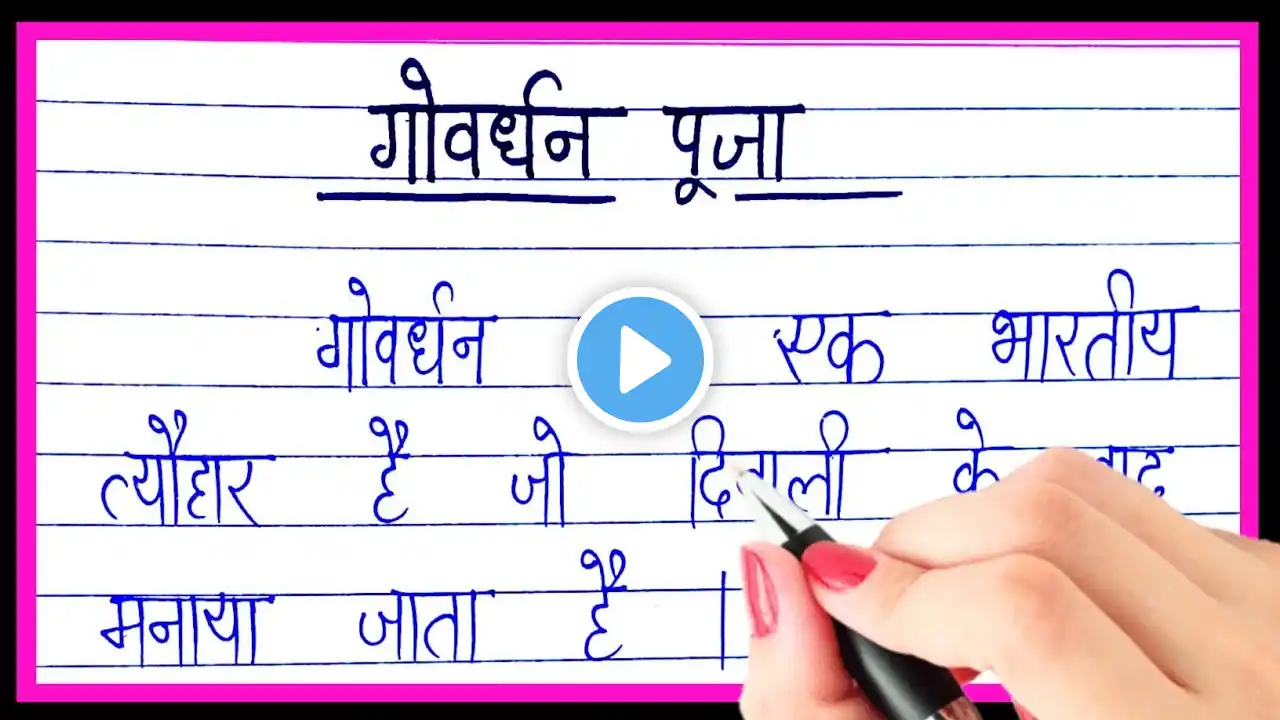 गोवर्धन पूजा
गोवर्धन एक भारतीय
त्यौहार है जो दिवाली के बाद
मनाया जाता है |